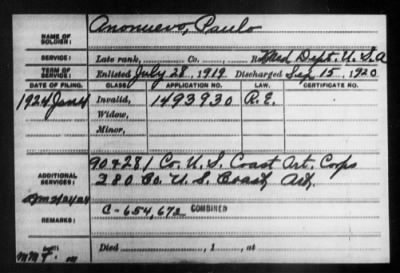 NAME OF SOLDIER: Anonuevo, Paulo
SERVICE: Late rank, Co., Med Dept. U.S.A
TERM OF SERVICE: Enlisted July 28, 1919 Discharged Sep 15, 1920
DATE OF FILING. CLASS. APPLICATION NO. LAW. CERTIFICATE NO.
1924 Jan 4 Invalid, 1493930 R.E.
Widow,
Minor,
ADDITIONAL SERVICES: 90 & 281 Co. U.S. Coast Art. Corps
280 Co. U.S. Coast Art.
REMARKS: C-654,672 COMBINED
Died , 1 , at